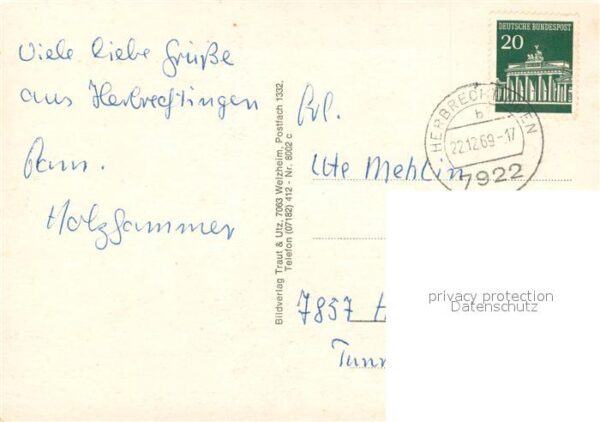 Viele liebe Grüße
aus Herbrechtingen
Fam.
Holzhammer
Bildverlag Traut & Utz, 7063 Welzheim, Postfach 1332.
Telefon (07182) 412 - Nr. 8002 c
DEUTSCHE BUNDESPOST
20
HERBRECHTINGEN
b
22.12.69-17
7922
Frl.
Ute Mehlin
7857 H
Tunn
privacy protection
Datenschutz